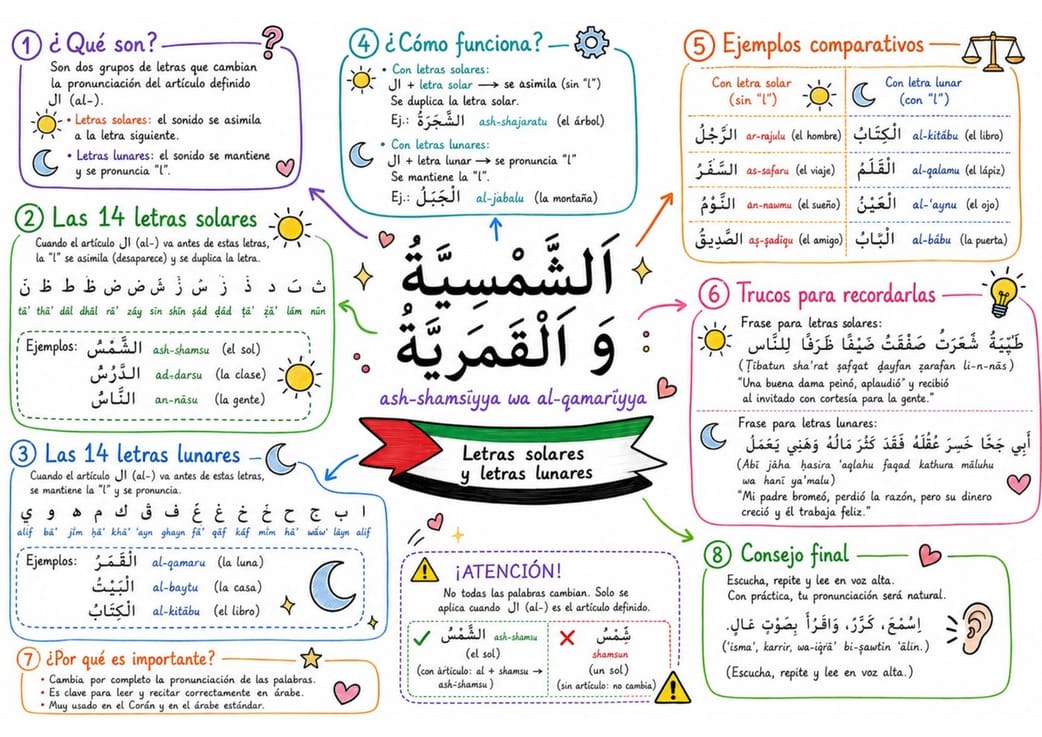 ① ¿Qué son?
Son dos grupos de letras que cambian
la pronunciación del artículo definido
ال (al-).
• Letras solares: el sonido se asimila
a la letra siguiente.
• Letras lunares: el sonido se mantiene
y se pronuncia "l".
② Las 14 letras solares
Cuando el artículo ال (al-) va antes de estas letras,
la "l" se asimila (desaparece) y se duplica la letra.
tā' thā' dāl dhāl rā' zāy sīn shīn ṣād ḍād ṭā' ẓā' lām nūn
Ejemplos: الشَّمْسُ ash-shamsu (el sol)
الدَّرْسُ ad-darsu (la clase)
النَّاسُ an-nāsu (la gente)
③ Las 14 letras lunares
Cuando el artículo ال (al-) va antes de estas letras,
se mantiene la "l" y se pronuncia.
alif bā' jīm ḥā' khā' 'ayn ghayn fā' qāf kāf mīm hā' wāw' lāyn alif
Ejemplos: الْقَمَرُ al-qamaru (la luna)
الْبَيْتُ al-baytu (la casa)
الْكِتَابُ al-kitābu (el libro)
⑦ ¿Por qué es importante?
• Cambia por completo la pronunciación de las palabras.
• Es clave para leer y recitar correctamente en árabe.
• Muy usado en el Corán y en el árabe estándar.
④ ¿Cómo funciona?
• Con letras solares:
ال + letra solar ⟶ se asimila (sin "l")
Se duplica la letra solar.
Ej.: الشَّجَرَةُ ash-shajaratu (el árbol)
• Con letras lunares:
ال + letra lunar → se pronuncia "l"
Se mantiene la "l".
Ej.: الْجَبَلُ al-jabalu (la montaña)
اَلشَّمْسِيَّةُ
وَ اَلْقَمَرِيَّةُ
ash-shamsīyya wa al-qamarīyya
Letras solares
y letras lunares
¡ATENCIÓN!
No todas las palabras cambian. Solo se
aplica cuando ال (al-) es el artículo definido.
✓ الشَّمْسُ ash-shamsu
(el sol)
(con àrtículo: al + shamsu →
ash-shamsu)
✗ شَمْسُ
shamsun
(un sol)
(sin artículo: no cambia)
⑤ Ejemplos comparativos
Con letra solar
(sin "l")
Con letra lunar
(con "l")
الرَّجْلُ ar-rajulu (el hombre) الْكِتَابُ al-kitābu (el libro)
السَّفَرُ as-safaru (el viaje) الْقَلَمُ al-qalamu (el lápiz)
النَّوْمُ an-nawmu (el sueño) الْعَيْنُ al-'aynu (el ojo)
الصَّدِيقُ aṣ-ṣadīqu (el amigo) الْبَابُ al-bābu (la puerta)
⑥ Trucos para recordarlas
Frase para letras solares:
شَعَرَتْ صَفْقَتْ ضَيْفًا ظَرَفًا لِلنَّاس
(Ṭibatun sha'rat ṣafqat ḍayfan ẓarafan li-n-nās)
"Una buena dama peinó, aplaudió" y recibió
al invitado con cortesía para la gente."
Frase para letras lunares:
أَبِي جَخَا خَسِرَ عُقْلَهُ فَقَدَ كَثُرَ مَالُهُ وَهَنِي يَعْمَلُ
(Abī jāha ḥasira 'aqlahu faqad kathura māluhu
wa hanī ya'malu)
"Mi padre bromeó, perdió la razón, pero su dinero
creció y él trabaja feliz."
⑧ Consejo final
Escucha, repite y lee en voz alta.
Con práctica, tu pronunciación será natural.
اِسْمَعْ، كَرِّرْ، وَاقْرَأْ بِصَوْتٍ عَالٍ.
('isma', karrir, wa-iqrā' bi-ṣawtin 'ālin.)
(Escucha, repite y lee en voz alta.)